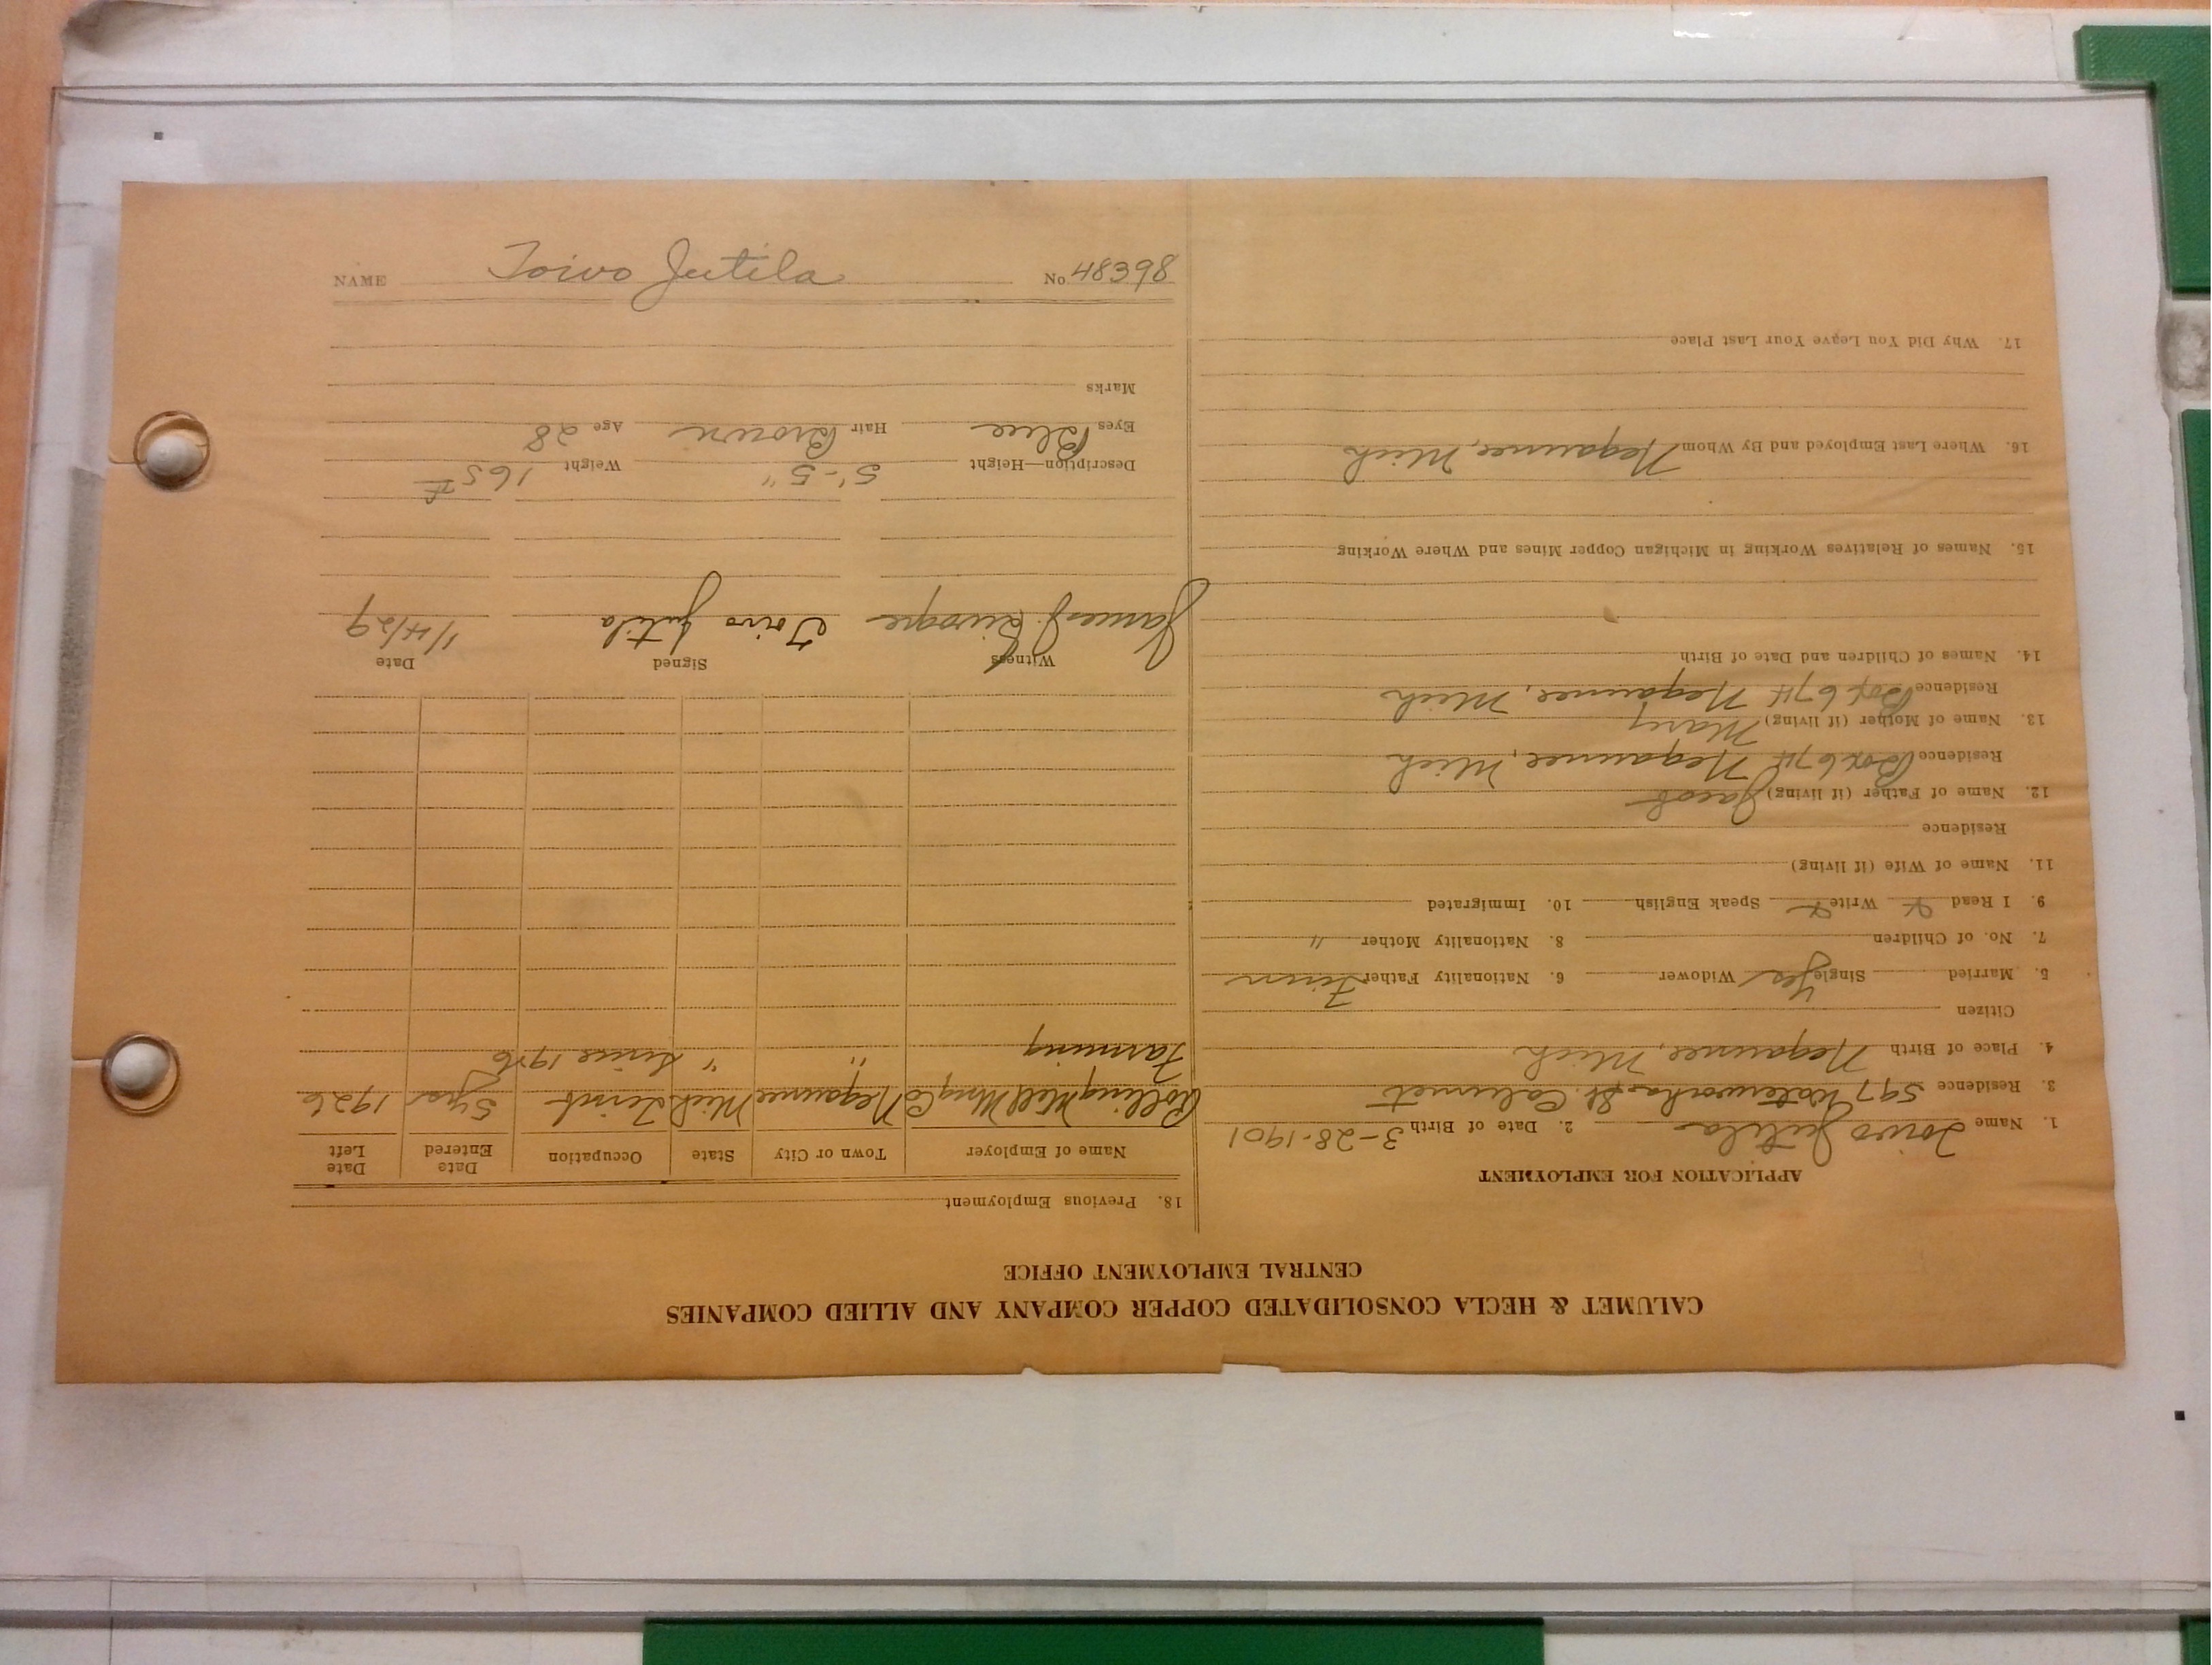 CALUMET & HECLA CONSOLIDATED COPPER COMPANY AND ALLIED COMPANIES
CENTRAL EMPLOYMENT OFFICE
APPLICATION FOR EMPLOYMENT
1. Name Toivo Jutila 2. Date of Birth 3-28-1901
3. Residence 597 Waterworks St. Calumet
4. Place of Birth Negaunee, Mich
Citizen
5. Married Single Yes Widower 6. Nationality Father Finn
7. No. of Children 8. Nationality Mother "
9. I Read Write Speak English 10. Immigrated
11. Name of Wife (if living)
Residence
12. Name of Father (if living) Jacob
Residence Box 674 Negaunee, Mich
13. Name of Mother (if living) Mary
Residence Box 674 Negaunee, Mich
14. Names of Children and Date of Birth
15. Names of Relatives Working in Michigan Copper Mines and Where Working
16. Where Last Employed and By Whom Negaunee, Mich
17. Why Did You Leave Your Last Place
18. Previous Employment
Name of Employer Town or City State Occupation Date Entered Date Left
Rolling Mill Mng Co Negaunee Mich 5 yrs 1926
Farming " " since 1926
Witness Signed Date
James J. Toivo Jutila 1/4/29
Description—Height 5'-5" Weight 165 #
Eyes Blue Hair Brown Age 28
Marks
NAME Toivo Jutila No 48398